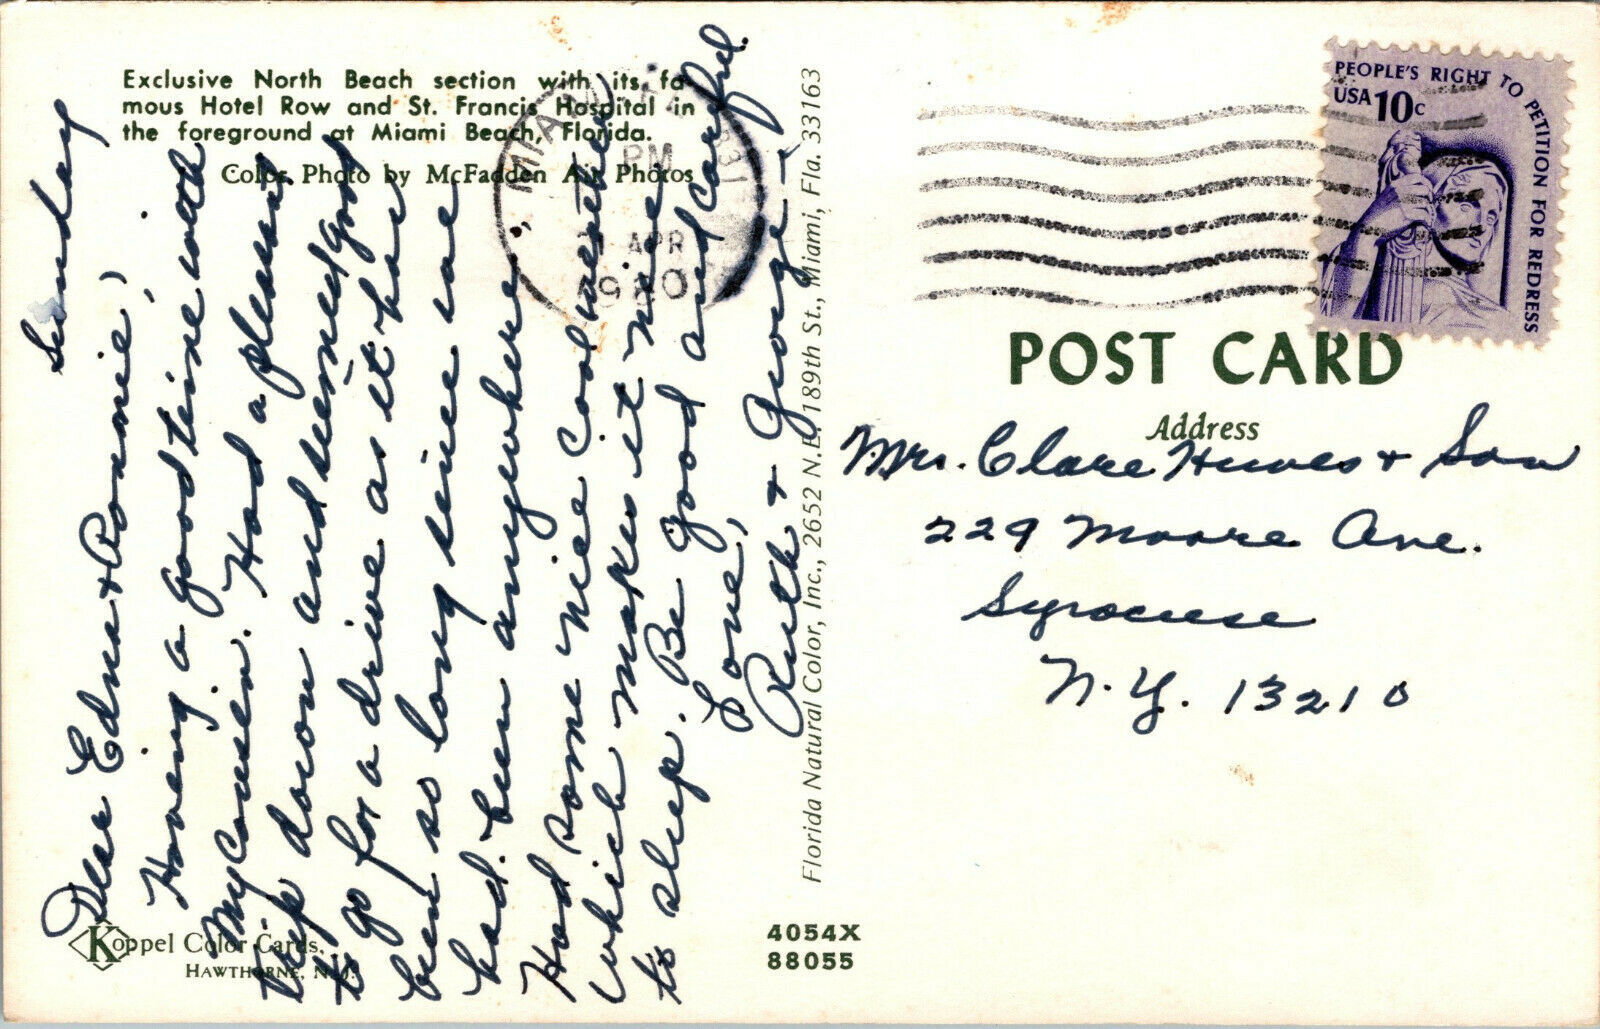 Exclusive North Beach section with its fa
mous Hotel Row and St. Francis Hospital in
the foreground at Miami Beach, Florida.
Color Photo by McFadden Air Photos
Sunday
Dear Edna + Ronnie,
Having a good time with
My Cousin. Had a pleasant
trip down and seemed good
to go for a drive as it has
been so long since we
had been anywhere.
Had some nice cool weather
which makes it nice
to sleep. Be good and careful.
Love,
Ruth + George
Koppel Color Cards
HAWTHORNE, N.J.
4054X
88055
Florida Natural Color, Inc., 2652 N.E. 189th St., Miami, Fla. 33163
MIAMI, FL 331
PM
APR
1980
PEOPLE'S RIGHT TO PETITION FOR REDRESS
USA 10c
POST CARD
Address
Mrs. Clare Huves + Son
229 Moore Ave.
Syracuse
N.Y. 13210